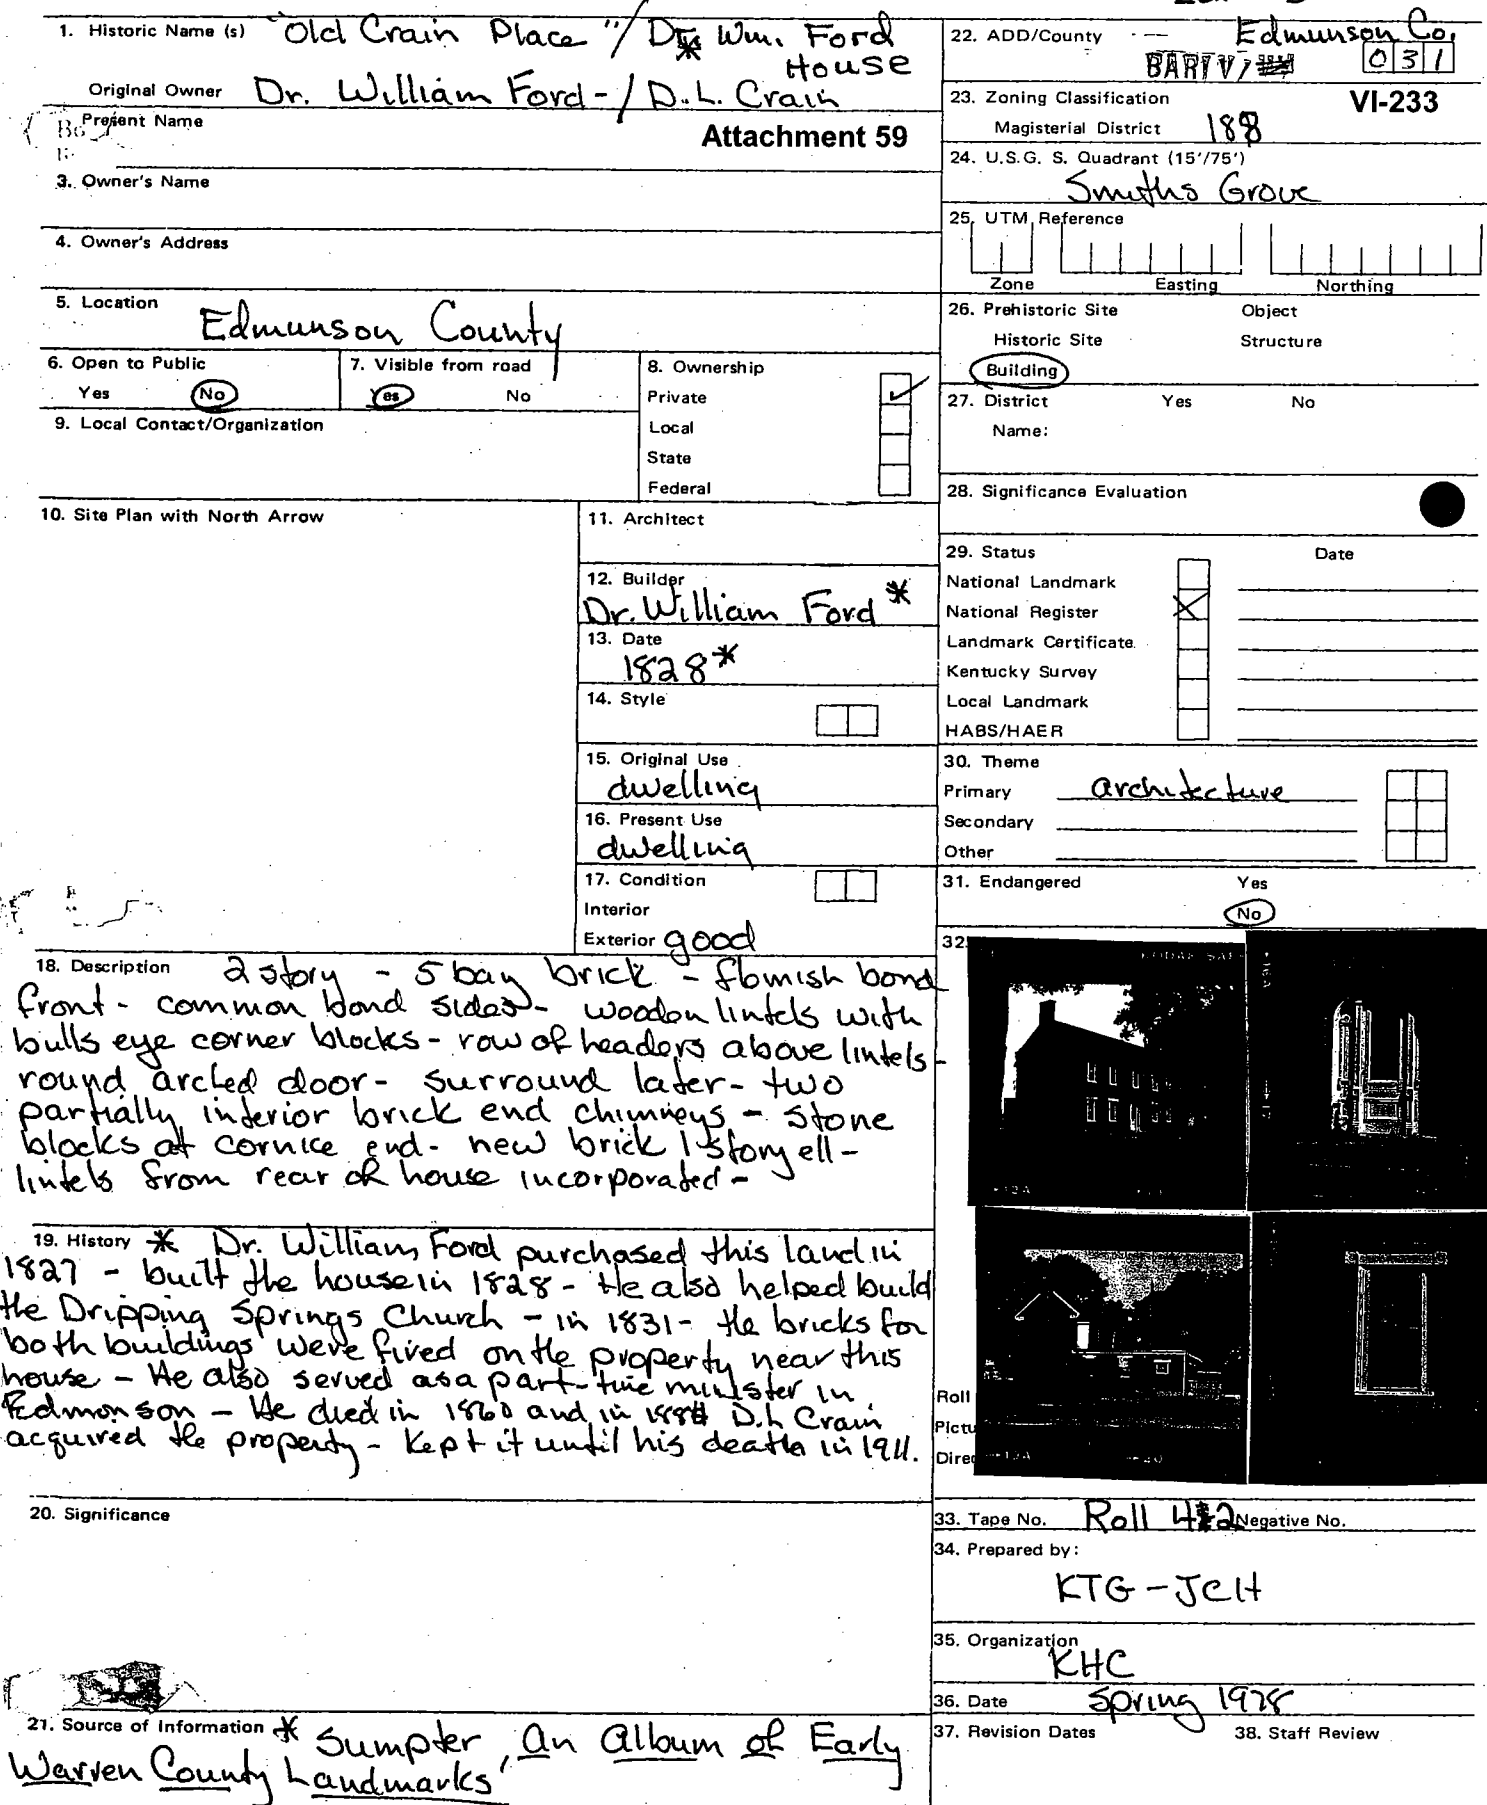 1. Historic Name (s) "Old Crain Place"/ Dr. Wm. Ford
* House
Original Owner Dr. William Ford - / D.L. Crain
Present Name
Attachment 59
3. Owner's Name
4. Owner's Address
5. Location
Edmunson County
6. Open to Public
Yes No
7. Visible from road
Yes No
8. Ownership
Private
Local
State
Federal
9. Local Contact/Organization
10. Site Plan with North Arrow
11. Architect
12. Builder
Dr. William Ford *
13. Date
1828*
14. Style
15. Original Use
dwelling
16. Present Use
dwelling
17. Condition
Interior
Exterior good
18. Description 2 story - 5 bay brick - flemish bond
front - common bond sides - wooden lintels with
bulls eye corner blocks - row of headers above lintels -
round arched door - surround later - two
partially interior brick end chimneys - stone
blocks at cornice end - new brick 1 story ell -
lintels from rear of house incorporated -
19. History * Dr. William Ford purchased this land in
1827 - built the house in 1828 - He also helped build
the Dripping Springs Church - in 1831 - the bricks for
both buildings were fired on the property near this
house - He also served as a part-time minister in
Edmonson - He died in 1860 and in D.L Crain
acquired the property - kept it until his death in 1911.
20. Significance
21. Source of Information * Sumpter, An Album of Early
Warren County Landmarks
22. ADD/County Edmunson Co.
031
23. Zoning Classification VI-233
Magisterial District 188
24. U.S.G. S. Quadrant (15'/75')
Smiths Grove
25. UTM Reference
Zone Easting Northing
26. Prehistoric Site Object
Historic Site Structure
Building
27. District Yes No
Name:
28. Significance Evaluation
29. Status Date
National Landmark
National Register
Landmark Certificate
Kentucky Survey
Local Landmark
HABS/HAER
30. Theme
Primary architecture
Secondary
Other
31. Endangered Yes
No
32.
Roll
Pictu
Direc
33. Tape No. Roll 42 Negative No.
34. Prepared by:
KTG - JCH
35. Organization
KHC
36. Date Spring 1978
37. Revision Dates 38. Staff Review